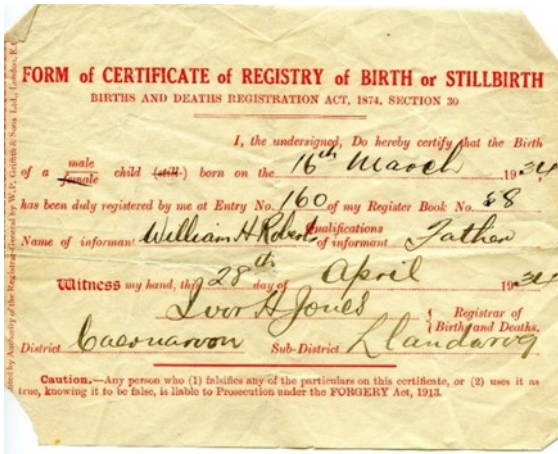 FORM of CERTIFICATE of REGISTRY of BIRTH or STILLBIRTH
BIRTHS AND DEATHS REGISTRATION ACT, 1874, SECTION 30
I, the undersigned, Do hereby certify that the Birth
of a male female child (still-) born on the 16th March 1934
has been duly registered by me at Entry No. 160 of my Register Book No. 58
Name of informant William H Roberts Qualifications of informant Father
Witness my hand, this 28th day of April 1934
Ivor H Jones Registrar of Births and Deaths.
District Caernarvon Sub-District Llandwrog
Caution.—Any person who (1) falsifies any of the particulars on this certificate, or (2) uses it as
true, knowing it to be false, is liable to Prosecution under the FORGERY Act, 1913.
by Authority of the Registrar-General by W.P. Griffith & Sons Ltd., London, E.C.